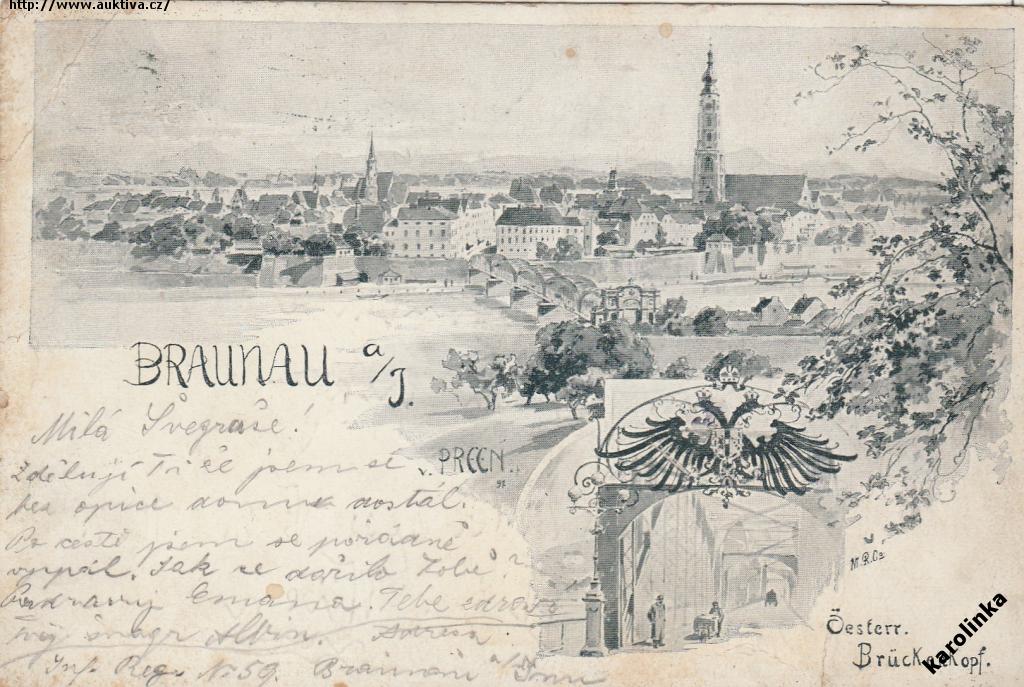 http://www.auktiva.cz/
BRAUNAU a/J.
v. PREEN.
Milá Švegruše!
Zděluji Ti že jsem se
bez opice domu dostál.
Po cestě jsem se pořádně
vyspál. Jak se dařilo Tobě?
Pozdravuj Emana. Tebe zdraví
Tvůj švagr Albin. Adresa
Inf. Reg. No 59. Braunau a/Inn
M.R.Co
Öesterr.
Brückenkopf.
karolinka